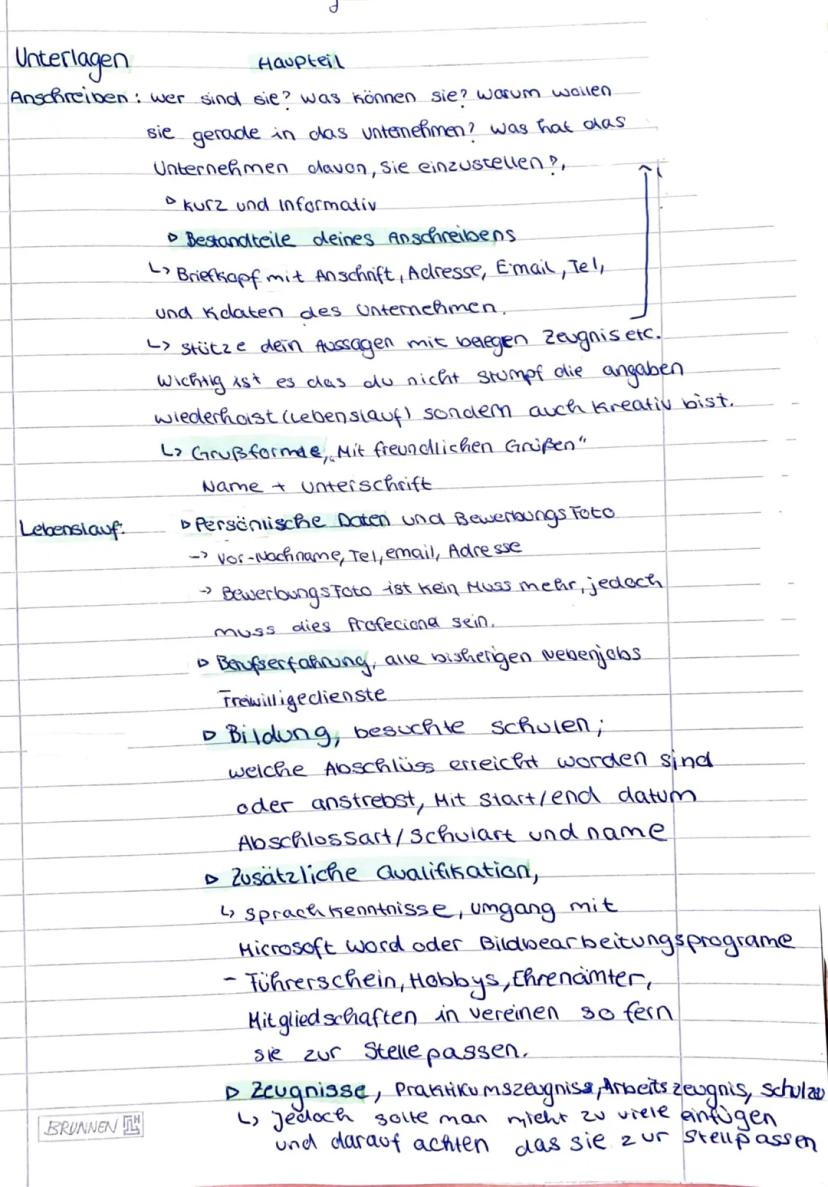 Unterlagen Haupteil
Anschreiben: wer sind sie? was können sie? warum wollen
sie gerade in das unternehmen? was hat das
Unternehmen davon, sie einzustellen?,
▷ kurz und Informativ
▷ Bestandteile deines Anschreibens
↳ Briefkopf mit Anschrift, Adresse, Email, Tel,
und Kdaten des Unternehmen.
↳ stütze dein Aussagen mit belegen Zeugnis etc.
Wichtig ist es das du nicht stumpf die angaben
wiederholst (Lebenslauf) sondern auch kreativ bist.
↳ Grußformel, „Mit freundlichen Grüßen"
Name + Unterschrift
Lebenslauf: ▷ Persönlische Daten und BewerbungsFoto
→ Vor-Nachname, Tel, email, Adresse
→ BewerbungsFoto ist kein Muss mehr, jedoch
muss dies Profeciona sein.
▷ Berufserfahrung, alle bisherigen Nebenjobs
Freiwilligedienste
▷ Bildung, besuchte schulen;
welche Abschlüss erreicht worden sind
oder anstrebst, Mit start/end datum
Abschlossart/Schulart und name
▷ Zusätzliche Qualifikation,
↳ sprachkenntnisse, umgang mit
Microsoft word oder Bildbearbeitungsprograme
- Führerschein, Hobbys, Ehrenämter,
Mitgliedschaften in vereinen so fern
sie zur Stelle passen.
▷ Zeugnisse, Praktikumszeugniss, Arbeitszeugnis,
↳ jedoch solte man nicht zu viele einfügen
und darauf achten das sie zur Stellpassen
BRUNNEN